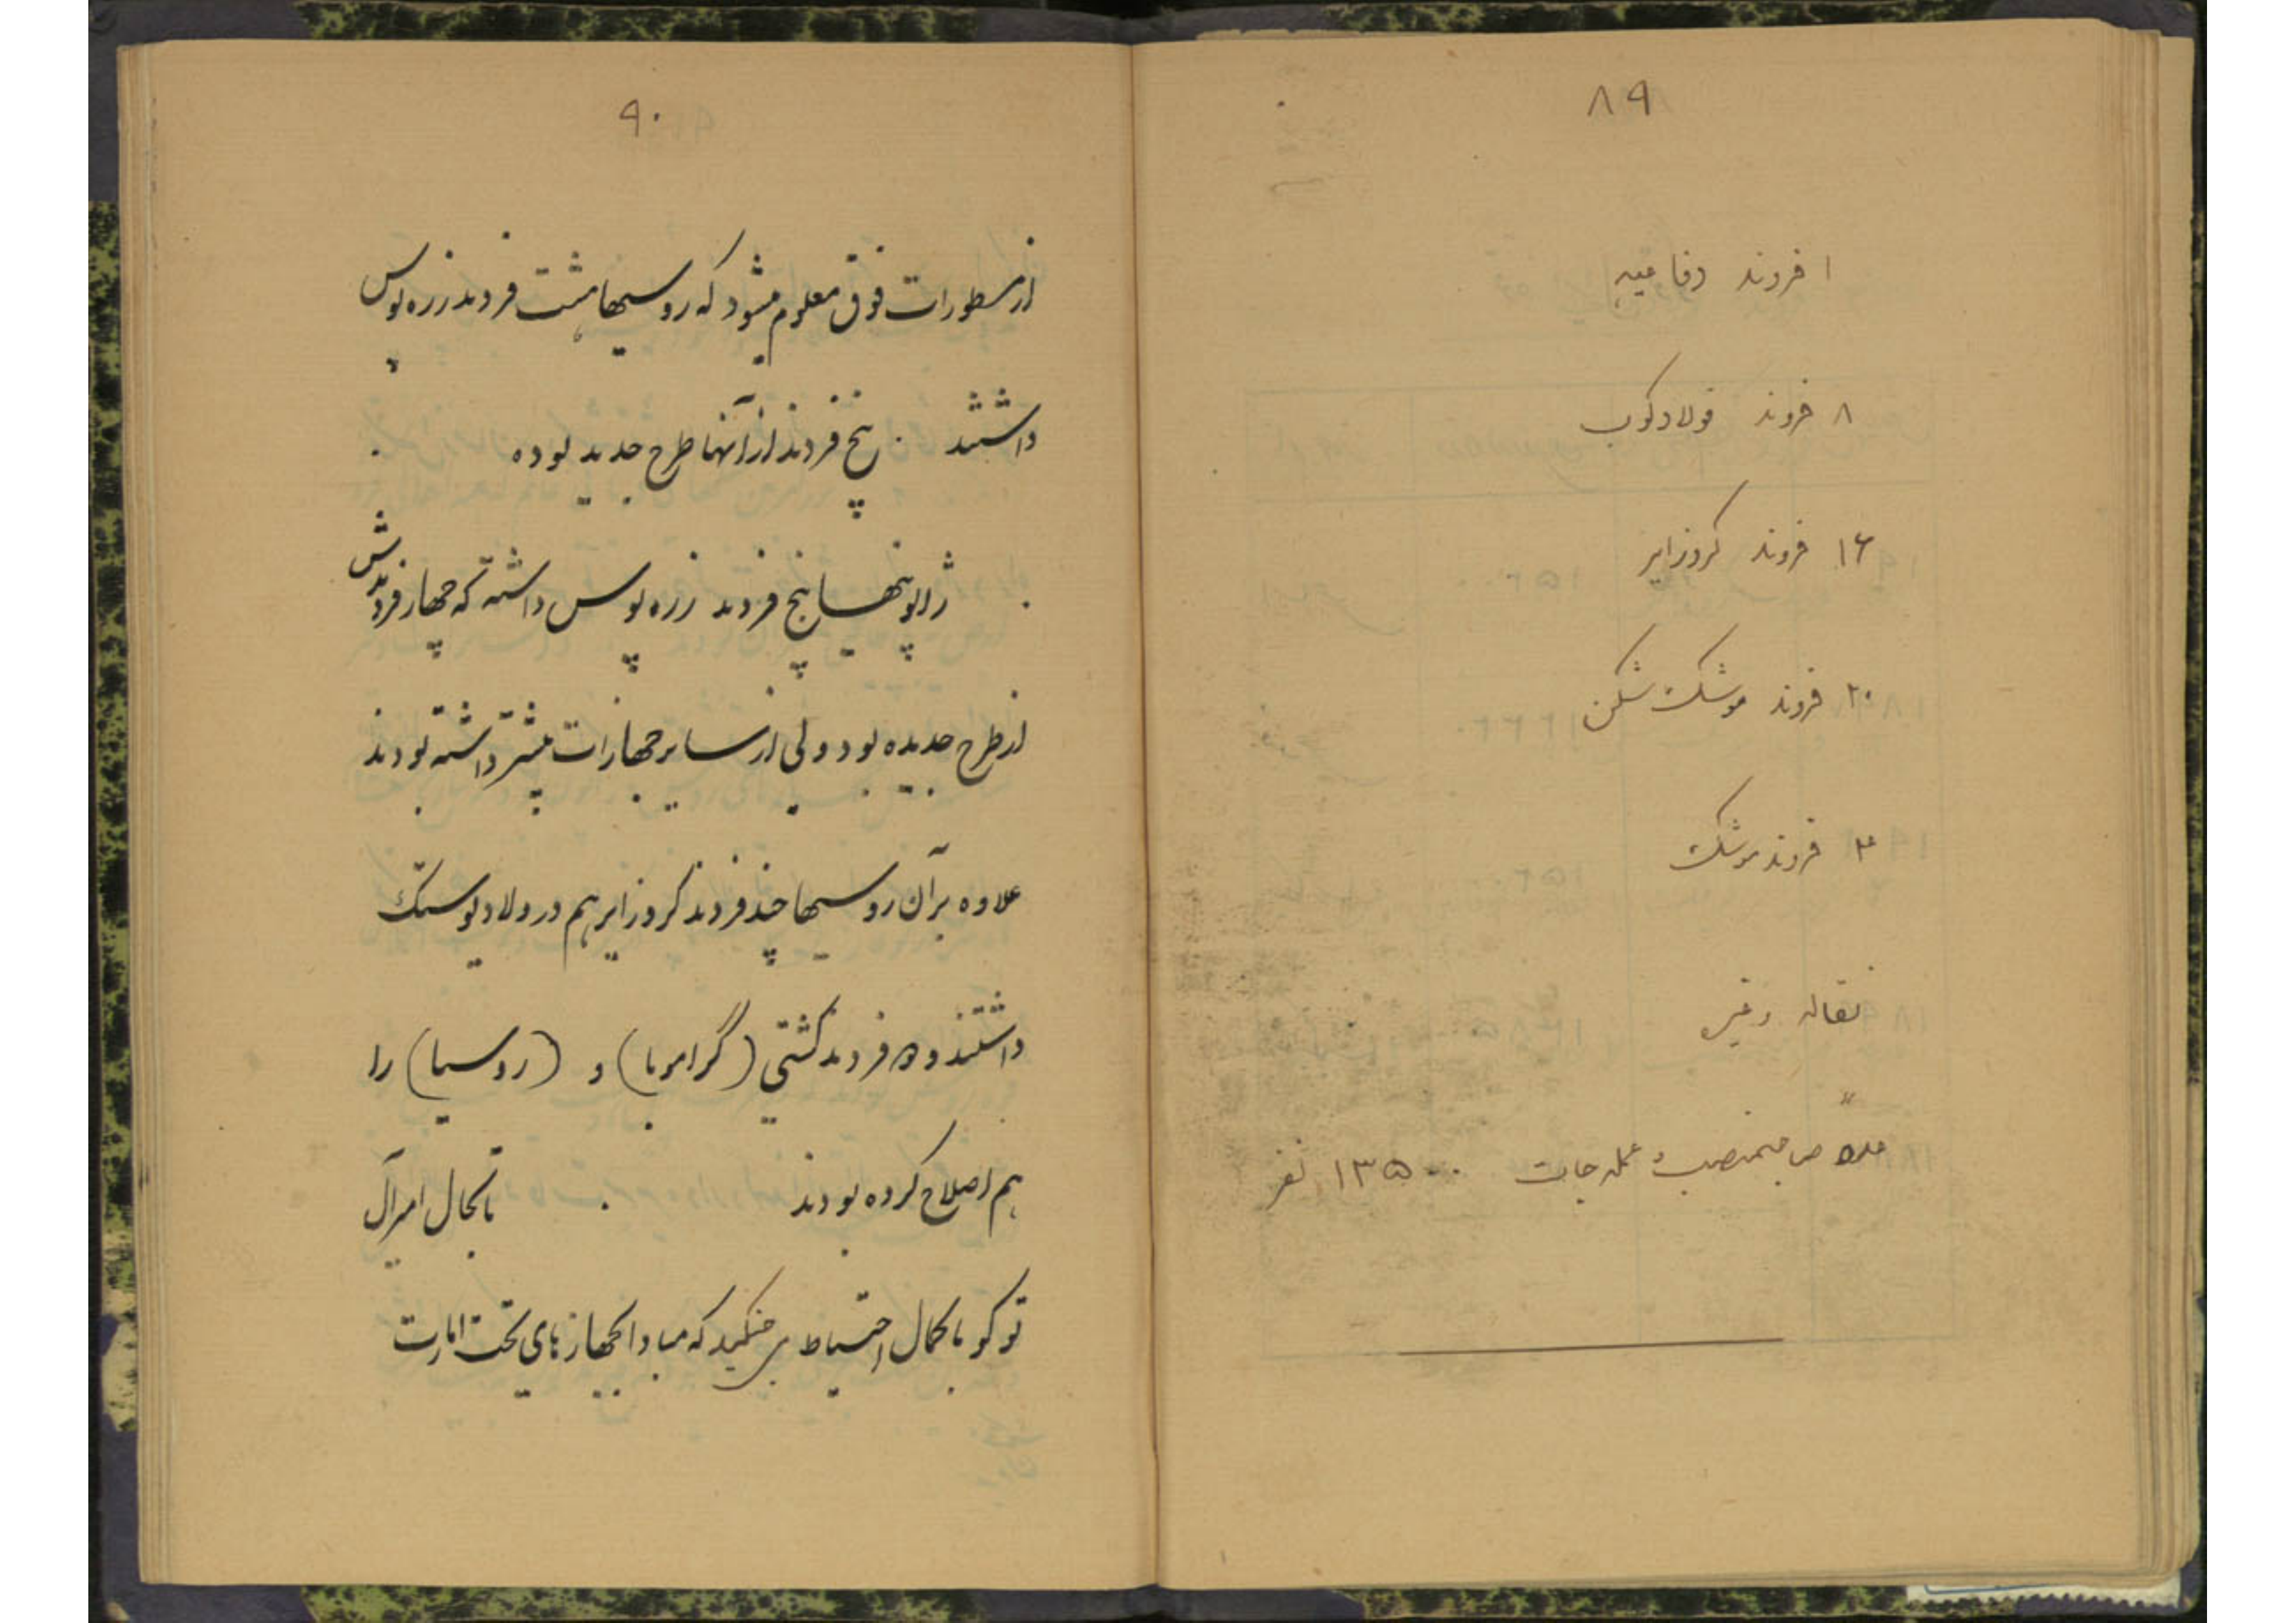 ۸۹
۱ فروند دفاعیه
۸ فروند فولادکوب
۱۶ فروند کروزایر
۲۰ فروند موشک‌شکن
۴ فروند موشک
نقاله و غیره
صاحبمنصب و عمله‌جات ۱۳۵۰۰ نفر
۹۰
از سطورات فوق معلوم میشود که روسیها هشت فروند زره پوس
داشتند . پنج فروند از آنها طرح جدید بوده .
. ژاپونیها پنج فروند زره پوس داشته که چهار فروندش
از طرح جدیده بود ولی از سایر جهازات بیشتر داشته بودند
علاوه بر آن روسیها چند فروند کروزایر هم در ولادیوستک
داشتند و فروند کشتی (گرامربا) و (روسیا) را
هم اصلاح کرده بودند . بااینحال امیرآل
توکو با کمال احتیاط می جنگید که مبادا جهازهای تحت امارت